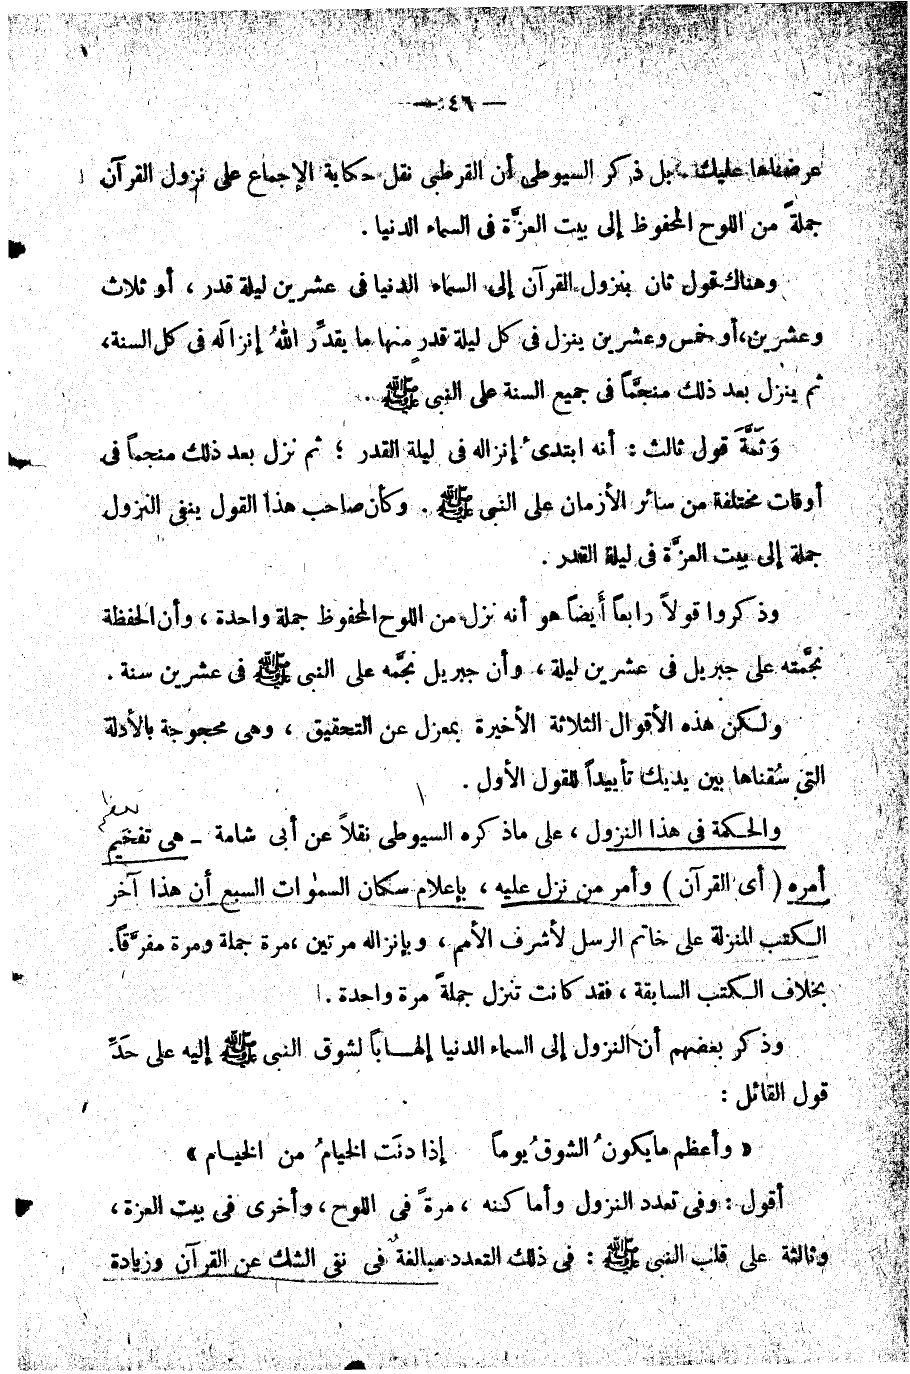 — ٤٦ —
عرضناها عليك. بل ذكر السيوطى أن القرطبى نقل حكاية الإجماع على نزول القرآن
جملةً من اللوح المحفوظ إلى بيت العزَّة فى السماء الدنيا .
وهناك قول ثان بنزول القرآن إلى السماء الدنيا فى عشرين ليلة قدر ، أو ثلاث
وعشرين، أو خمس وعشرين ينزل فى كل ليلة قدرٍ منها ما يقدِّر اللهُ إنزالَه فى كل السنة،
ثم ينزل بعد ذلك منجمَّاً فى جميع السنة على النبى ﷺ .
وَثَمَّةَ قول ثالث : أنه ابتدىء إنزاله فى ليلة القدر ؛ ثم نزل بعد ذلك منجماً فى
أوقات مختلفة من سائر الأزمان على النبى ﷺ . وكأن صاحب هذا القول ينفى النزول
جملة إلى بيت العزَّة فى ليلة القدر .
وذكروا قولاً رابعاً أيضاً هو أنه نزل من اللوح المحفوظ جملة واحدة ، وأن الحفظة
نجَّمته على جبريل فى عشرين ليلة ، وأن جبريل نجَّمه على النبى ﷺ فى عشرين سنة .
ولكن هذه الأقوال الثلاثة الأخيرة بمعزل عن التحقيق ، وهى محجوجة بالأدلة
التى سُقناها بين يديك تأييداً للقول الأول .
والحكمة فى هذا النزول ، على ماذكره السيوطى نقلاً عن أبى شامة – هى تفخيم
أمره ( أى القرآن ) وأمر من نزل عليه ، بإعلام سكان السمٰوات السبع أن هذا آخر
الكتب المنزلة على خاتم الرسل لأشرف الأمم ، وبإنزاله مرتين ، مرة جملة ومرة مفرَّقاً.
بخلاف الكتب السابقة ، فقد كانت تنزل جملةً مرة واحدة .
وذكر بعضهم أن النزول إلى السماء الدنيا إلهاباً لشوق النبى ﷺ إليه على حَدِّ
قول القائل :
« وأعظم مايكونُ الشوقُ يوماً إذا دنَت الخيامُ من الخيام »
أقول : وفى تعدد النزول وأماكنه ، مرةً فى اللوح ، وأخرى فى بيت العزة ،
وثالثة على قلب النبى ﷺ : فى ذلك التعدد مبالغة فى نفى الشك عن القرآن وزيادة